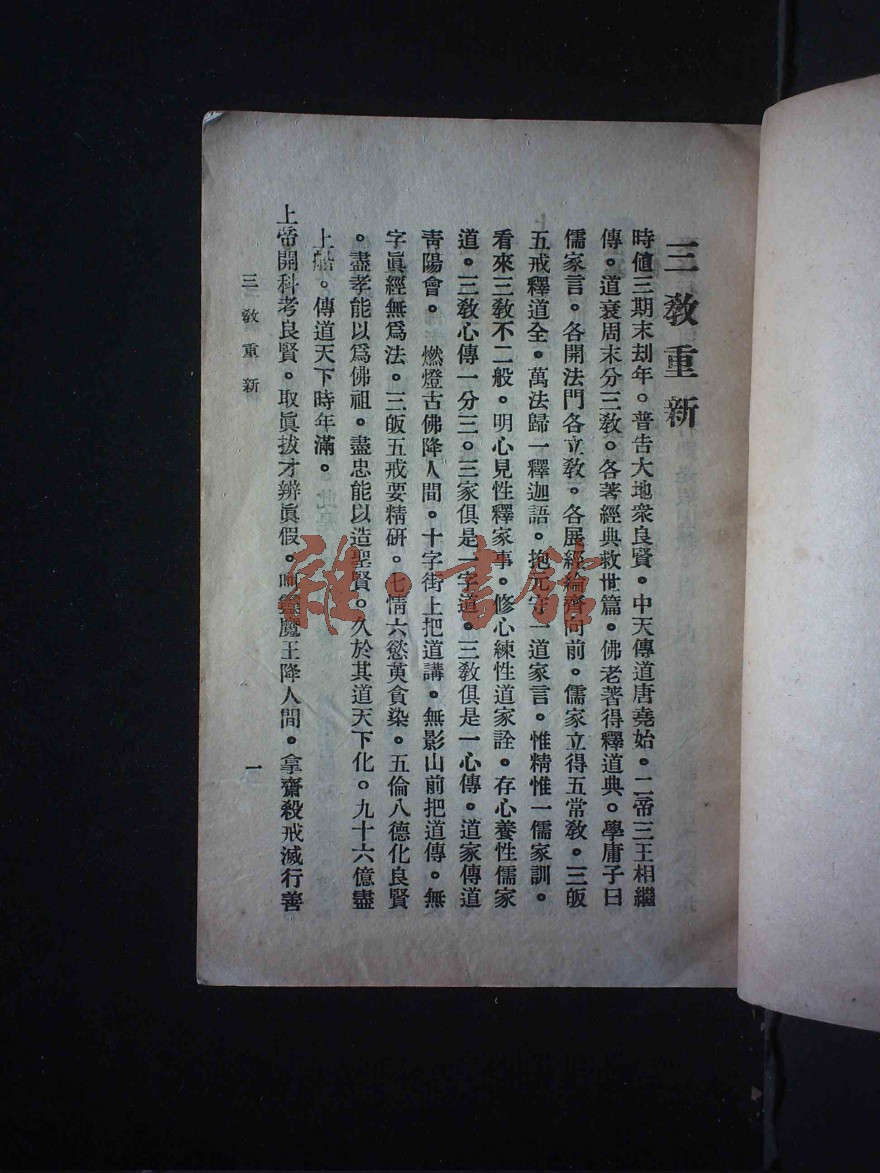 三教重新
時值三期末刧年。普吿大地衆良賢。中天傳道唐堯始。二帝三王相繼
傳。道衰周末分三敎。各著經典救世篇。佛老著得釋道典。學庸子曰
儒家言。各開法門各立敎。各展經綸齊向前。儒家立得五常敎。三皈
五戒釋道全。萬法歸一釋迦語。抱元守一道家言。惟精惟一儒家訓。
看來三敎不二般。明心見性釋家事。修心練性道家詮。存心養性儒家
道。三敎心傳一分三。三家俱是一字道。三敎俱是一心傳。道家傳道
靑陽會。燃燈古佛降人間。十字街上把道講。無影山前把道傳。無
字眞經無爲法。三皈五戒要精硏。七情六慾莫貪染。五倫八德化良賢
。盡孝能以爲佛祖。盡忠能以造聖賢。久於其道天下化。九十六億盡
上船。傳道天下時年滿。
上帝開科考良賢。取眞拔才辨眞假。魔王降人間。拿齋殺戒滅行善
三敎重新
一
雅書館